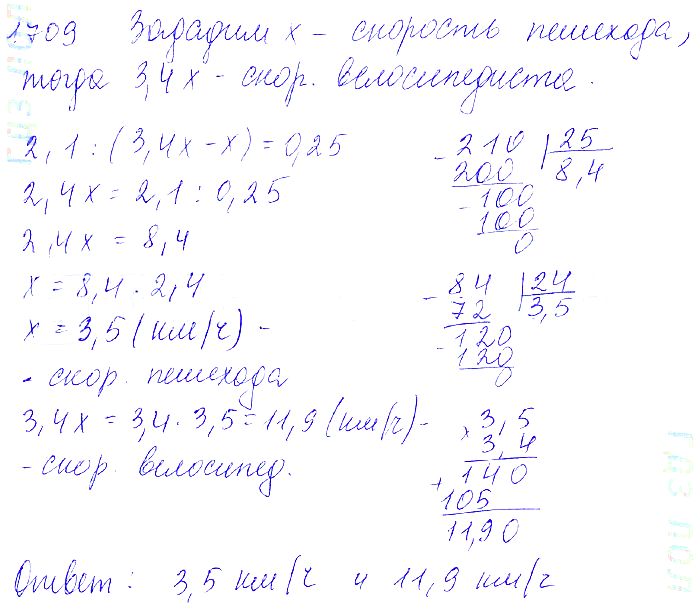 1709 Зададим x – скорость пешехода,
тогда 3,4x – скор. велосипедиста.
2,1 : (3,4x – x) = 0,25
2,4x = 2,1 : 0,25
2,4x = 8,4
x = 8,4 : 2,4
x = 3,5 (км/ч) –
- скор. пешехода
3,4x = 3,4 · 3,5 = 11,9 (км/ч) –
- скор. велосипед.
- 210 | 25
200 8,4
- 100
100
0
- 84 | 24
72 3,5
- 120
120
0
x 3,5
3,4
+ 140
105
11,90
Ответ: 3,5 км/ч и 11,9 км/ч